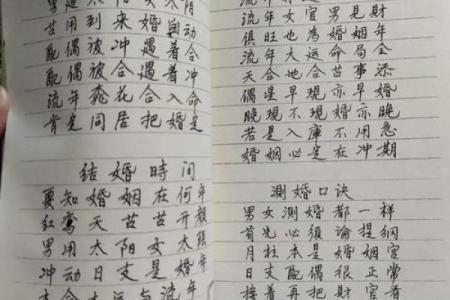 苦用到来婚自动
配偶被冲遇着合
配偶被合遇着冲
流年桃花合入命
肯定同居把婚定
结婚時间
要知婚姻在何年
红鸾天苦苦开颜
男用太阳女太阴
冲动日支是婚年
流年女官男見財
俱旺也為婚姻年
流年大运命局全
天合地合苦事添
偶星早現婚亦早
晚現不現婚亦晚
若是入庫不用急
婚姻必定在冲期
測婚口诀
男女測婚都一样
首先必須論提纲
月柱本是婚姻宫
日支配偶很正常
接着再把財官看